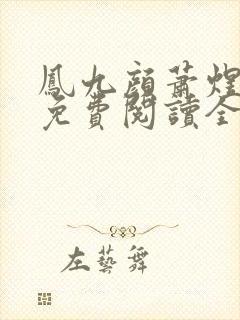 鳳九顏蕭煌
免費閱讀全
左藝舞